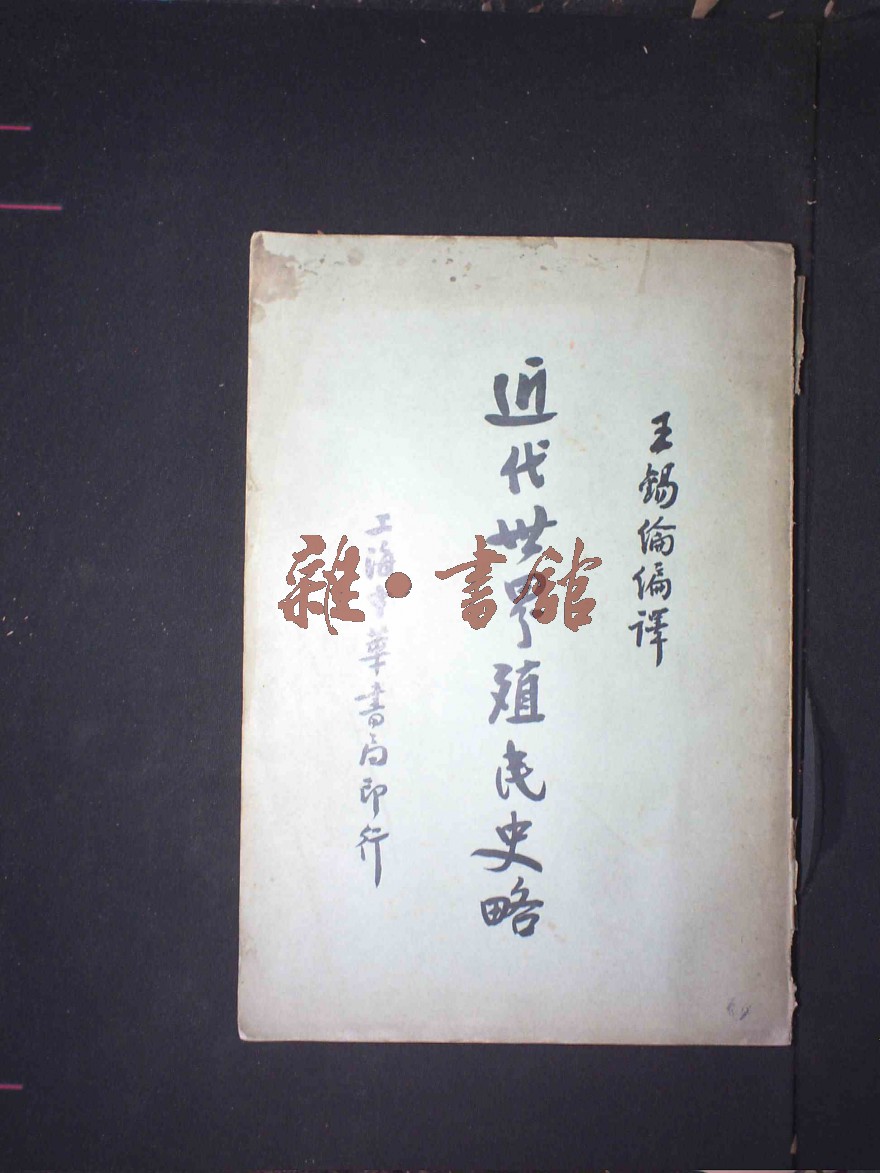 王錫倫編譯
近代世界殖民史略
上海中華書局印行
雜·書館